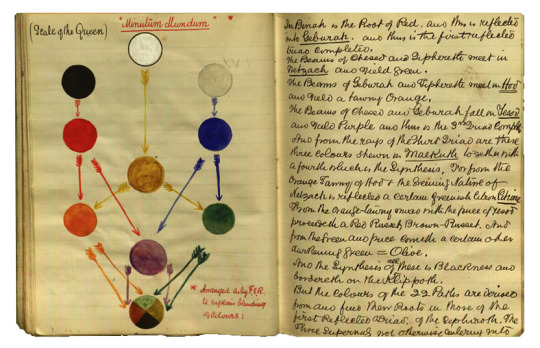 (Scale of the Queen)
"Minutum Mundum"
* Arranged by
to explain blending
of Colours:
In Binah is the Root of Red, and this is reflected
into Geburah. and thus is the first reflected
triad completed.
The Beams of Chesed and Tiphereth meet in
Netzach and yield Green.
The Beams of Geburah and Tiphereth meet in Hod
and yield a tawny Orange.
The Beams of Chesed and Geburah fall in Yesod
and yield Purple and thus is the 3rd Triad
And from the rays of the Third Triad are these
three colours shewn in Malkuth together with
a fourth which is the Synthesis. For from the
Orange Tawny of Hod & the Greening Nature of
Netzach is reflected a certain Greenish Citrine
From the Orange tawny mixed with the puce of Yesod
proceedeth a Red Russet Brown-Russet. And
from the Green and puce cometh a certain other
darkening Green = Olive.
And the Synthesis of all these is Blackness and
bordereth on the Klippoth.
But the Colours of the 22 Paths are derived
from and find their Roots in those of the
first Reflected Triad, of the Sephiroth, The
Three Supernals not otherwise entering into